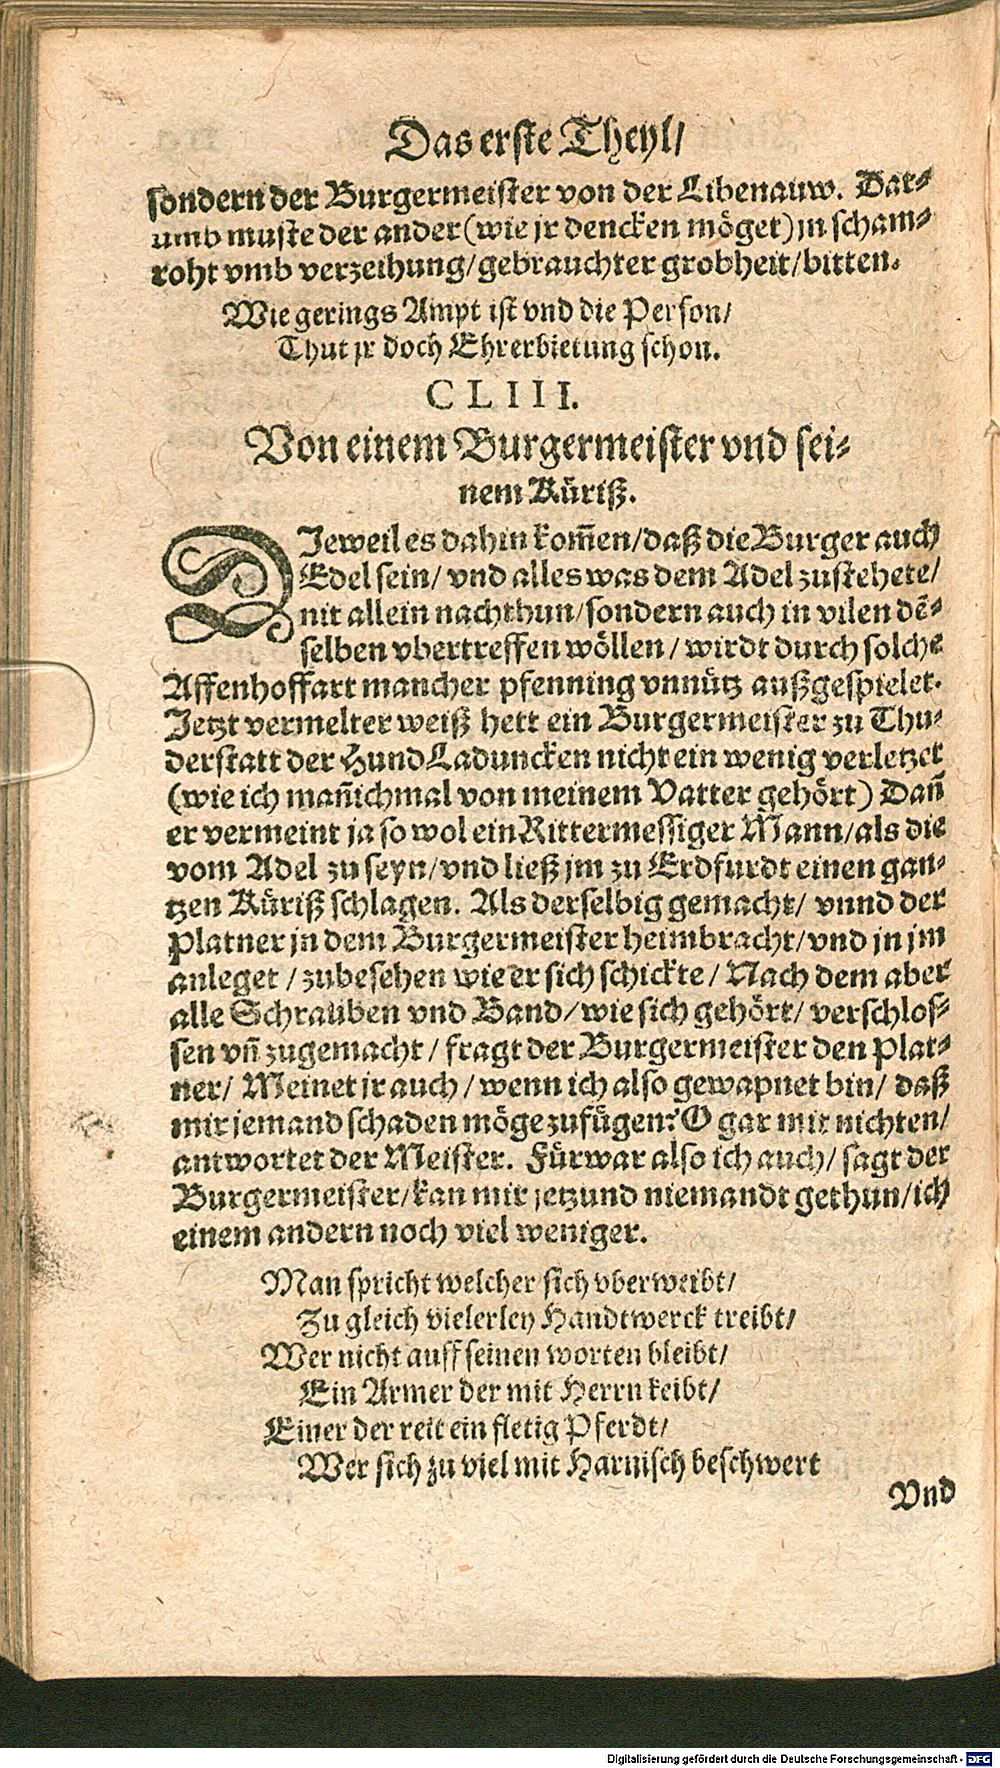 Das erste Theyl/
sondern der Burgermeister von der Libenauw. Dar⸗
umb muste der ander (wie jr dencken möget) in scham⸗
roht vmb verzeihung/gebrauchter grobheit/bitten.
Wie gerings Ampt ist vnd die Person/
Thut jr doch Ehrerbietung schon.
CLIII.
Von einem Burgermeister vnd sei⸗
nem Küriß.
DJeweil es dahin kom̃en/daß die Burger auch
Edel sein/ vnd alles was dem Adel zustehete/
nit allein nachthun/sondern auch in vilen dē⸗
selben vbertreffen wöllen/ wirdt durch solche
Affenhoffart mancher pfenning vnnütz außgespielet.
Jetzt vermelter weiß hett ein Burgermeister zu Thu⸗
derstatt der Hund Laduncken nicht ein wenig verletzet
(wie ich mañichmal von meinem Vatter gehört) Dañ
er vermeint ja so wol ein Rittermessiger Mann/als die
vom Adel zu seyn/vnd ließ jm zu Erdfurdt einen gan⸗
tzen Küriß schlagen. Als derselbig gemacht/ vnnd der
Platner jn dem Burgermeister heimbracht/vnd jn jm
anleget/ zubesehen wie er sich schickte/ Nach dem aber
alle Schrauben vnd Band/wie sich gehört/ verschlos⸗
sen vñ zugemacht/ fragt der Burgermeister den Plat⸗
ner/ Meinet jr auch/wenn ich also gewapnet bin/ daß
mir jemand schaden möge zufügen? O gar mit nichten/
antwortet der Meister. Fürwar also ich auch/ sagt der
Burgermeister/kan mir jetzund niemandt gethun/ich
einem andern noch viel weniger.
Man spricht welcher sich vberweibt/
Zu gleich vielerley Handtwerck treibt/
Wer nicht auff seinen worten bleibt/
Ein Armer der mit Herrn keibt/
Einer der reit ein fletig Pferdt/
Wer sich zu viel mit Harnisch beschwert
Vnd
Digitalisierung gefördert durch die Deutsche Forschungsgemeinschaft - DFG